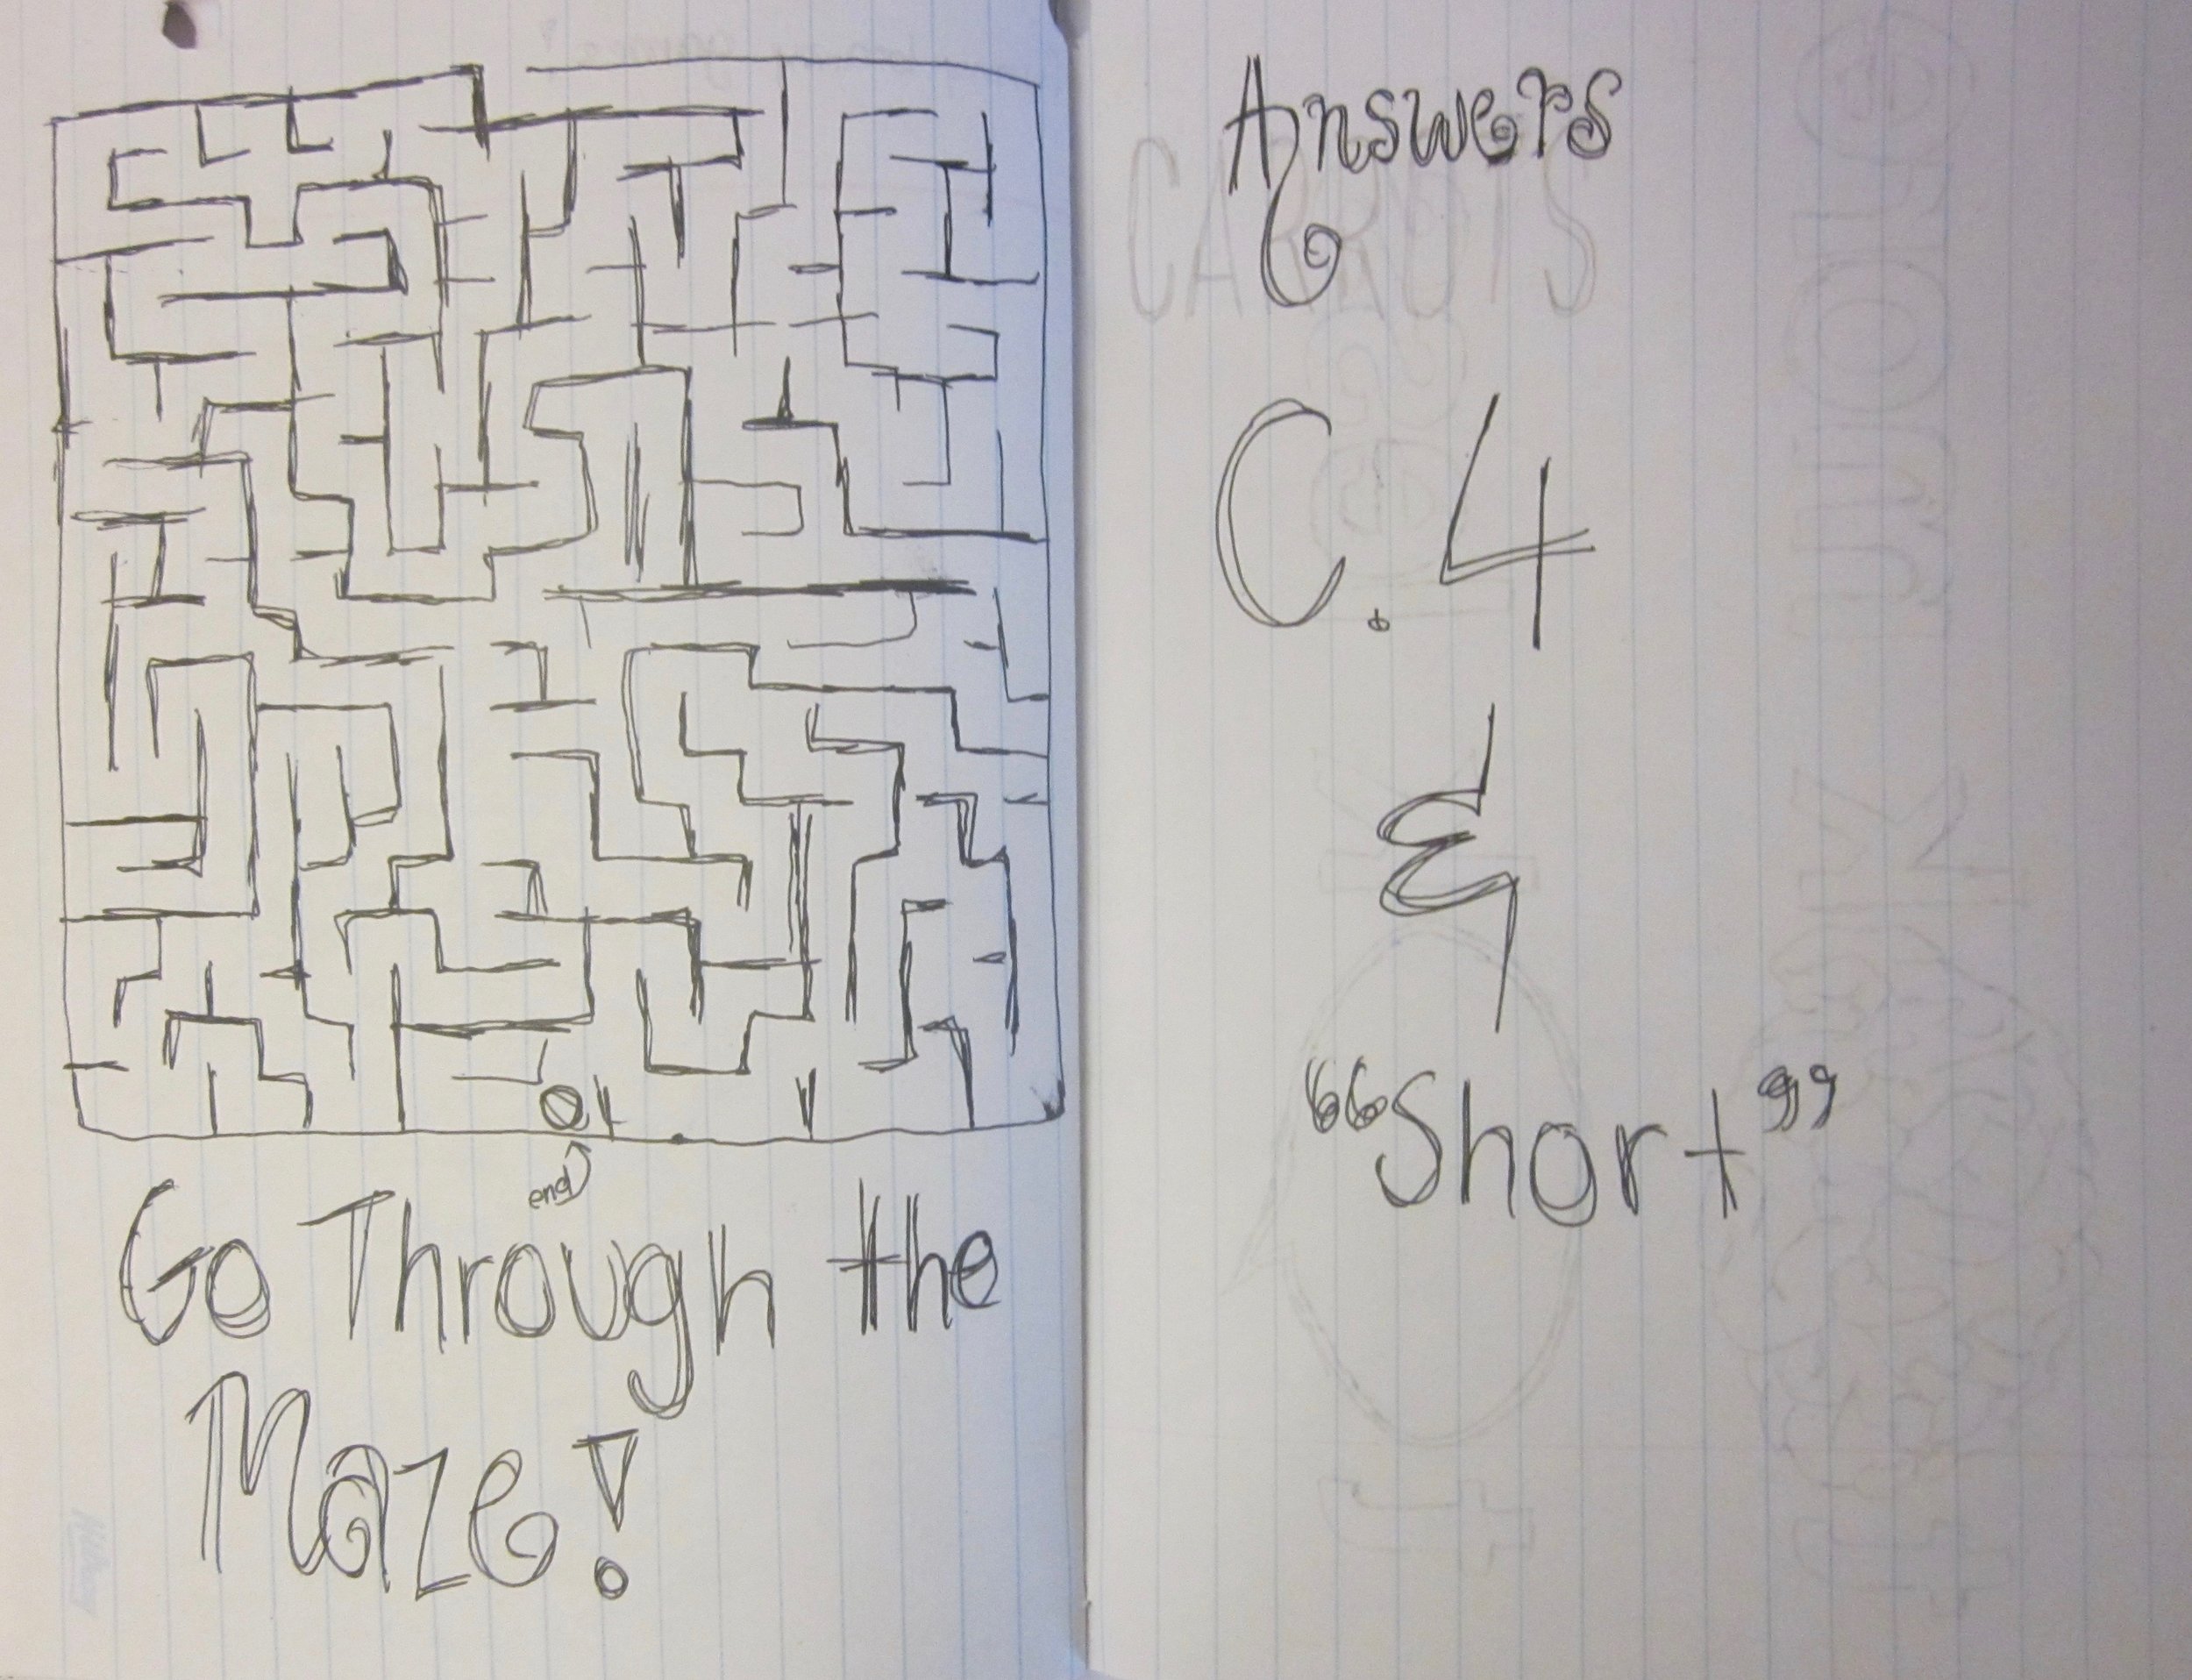 end
Go Through the
Maze!
Answers
C. 4
&
"Short"
CARROTS